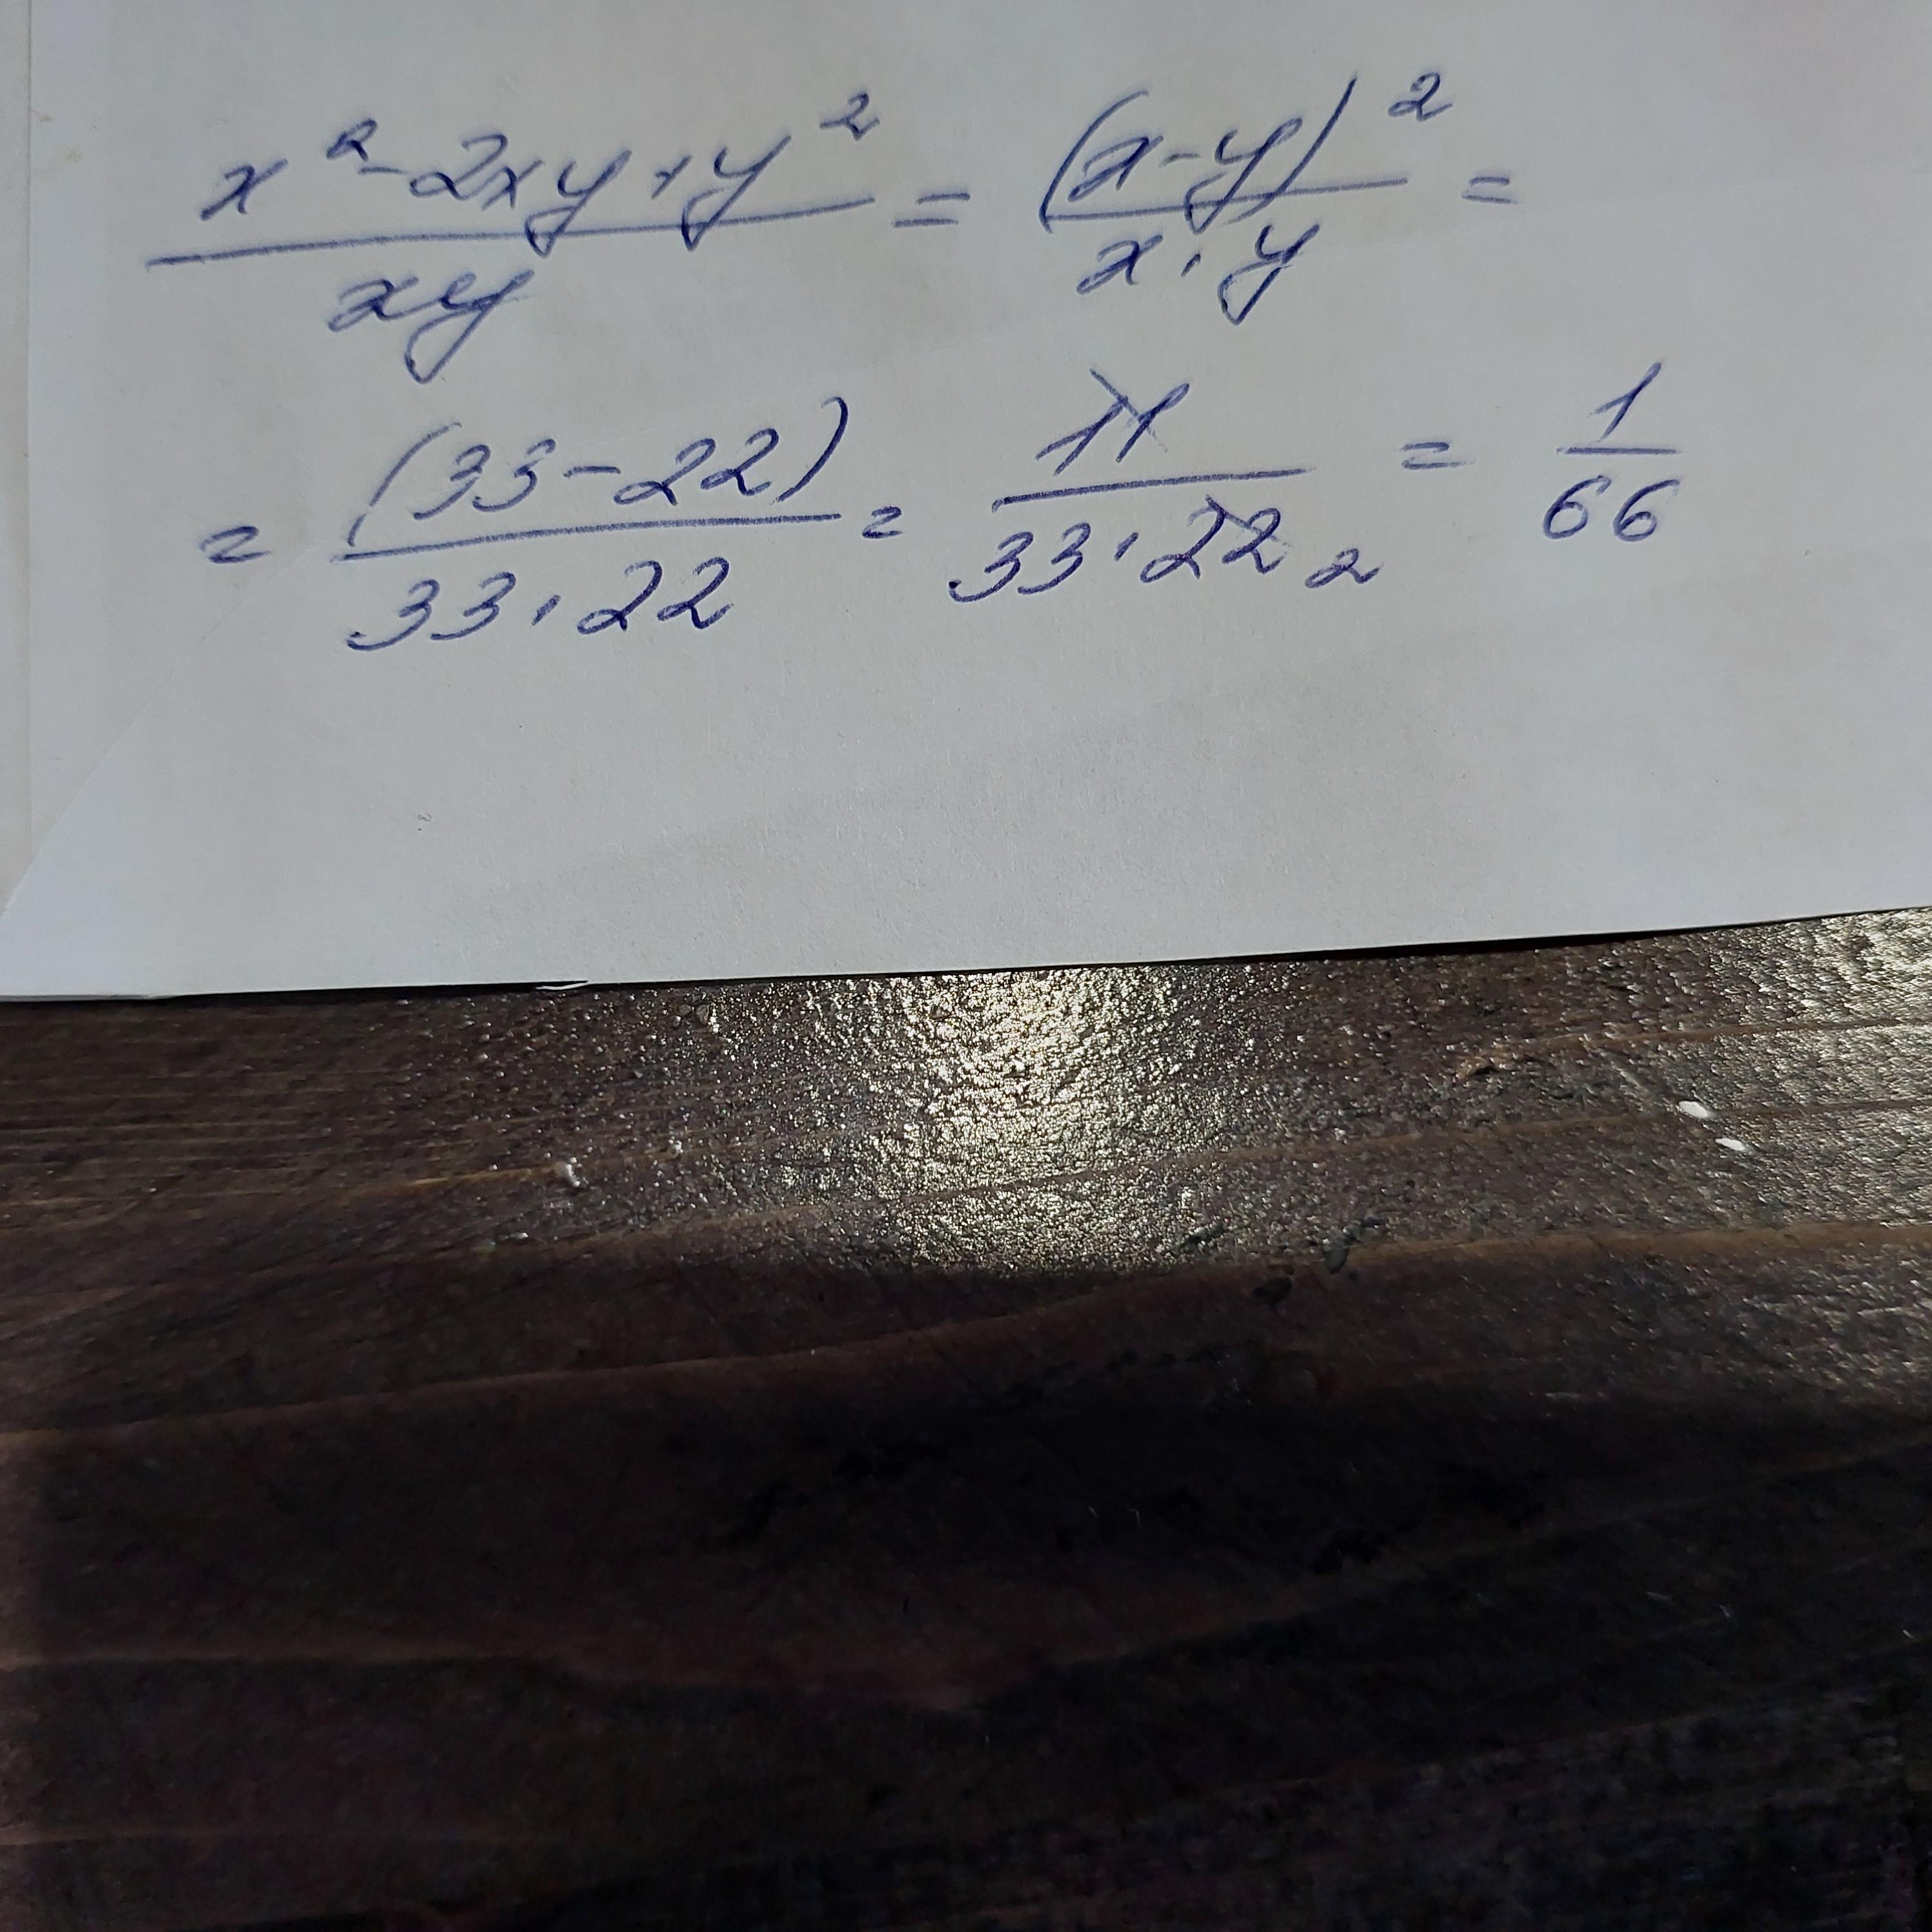 x² - 2xy + y² / xy = (x - y)² / x · y =
= (33 - 22) / 33 · 22 = 11 / 33 · 22 2 = 1 / 66